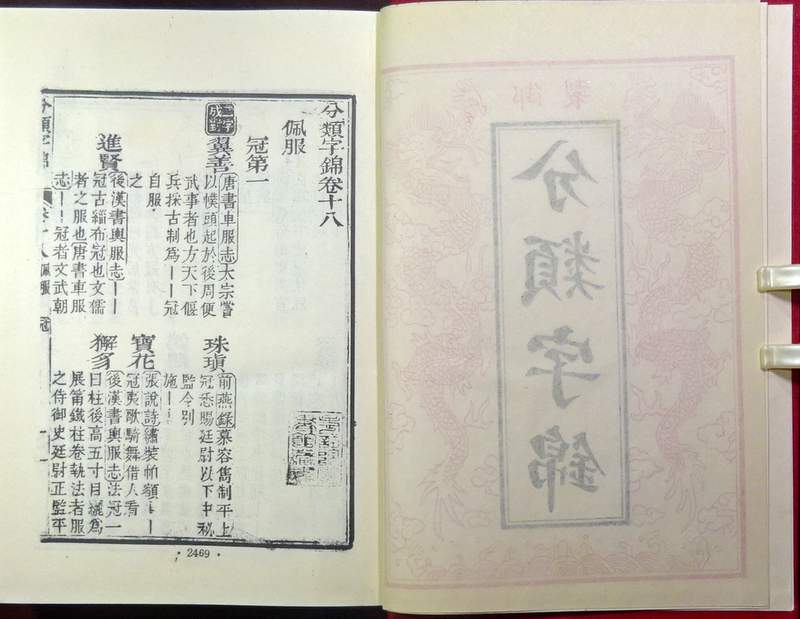 御製
分類字錦
分類字錦卷十八
佩服
冠第一
二字成對
翼善
唐書車服志太宗嘗
以幞頭起於後周便
武事者也方天下偃
兵採古制爲——冠
自服
之
珠瑱
前燕錄慕容雋制平上
冠悉賜廷尉以下中秘
監令別
施——
進賢
後漢書輿服志——
冠古緇布冠也文儒
者之服也唐書車服
志——冠者文武朝
寶花
張說詩繡裝帕額——
冠夷歌騎舞借人看
獬豸
後漢書輿服志法冠一
曰柱後高五寸㠯纚爲
展筩鐵柱卷執法者服
之侍御史廷尉正監平
分類字錦 卷十八 佩服 冠
2469